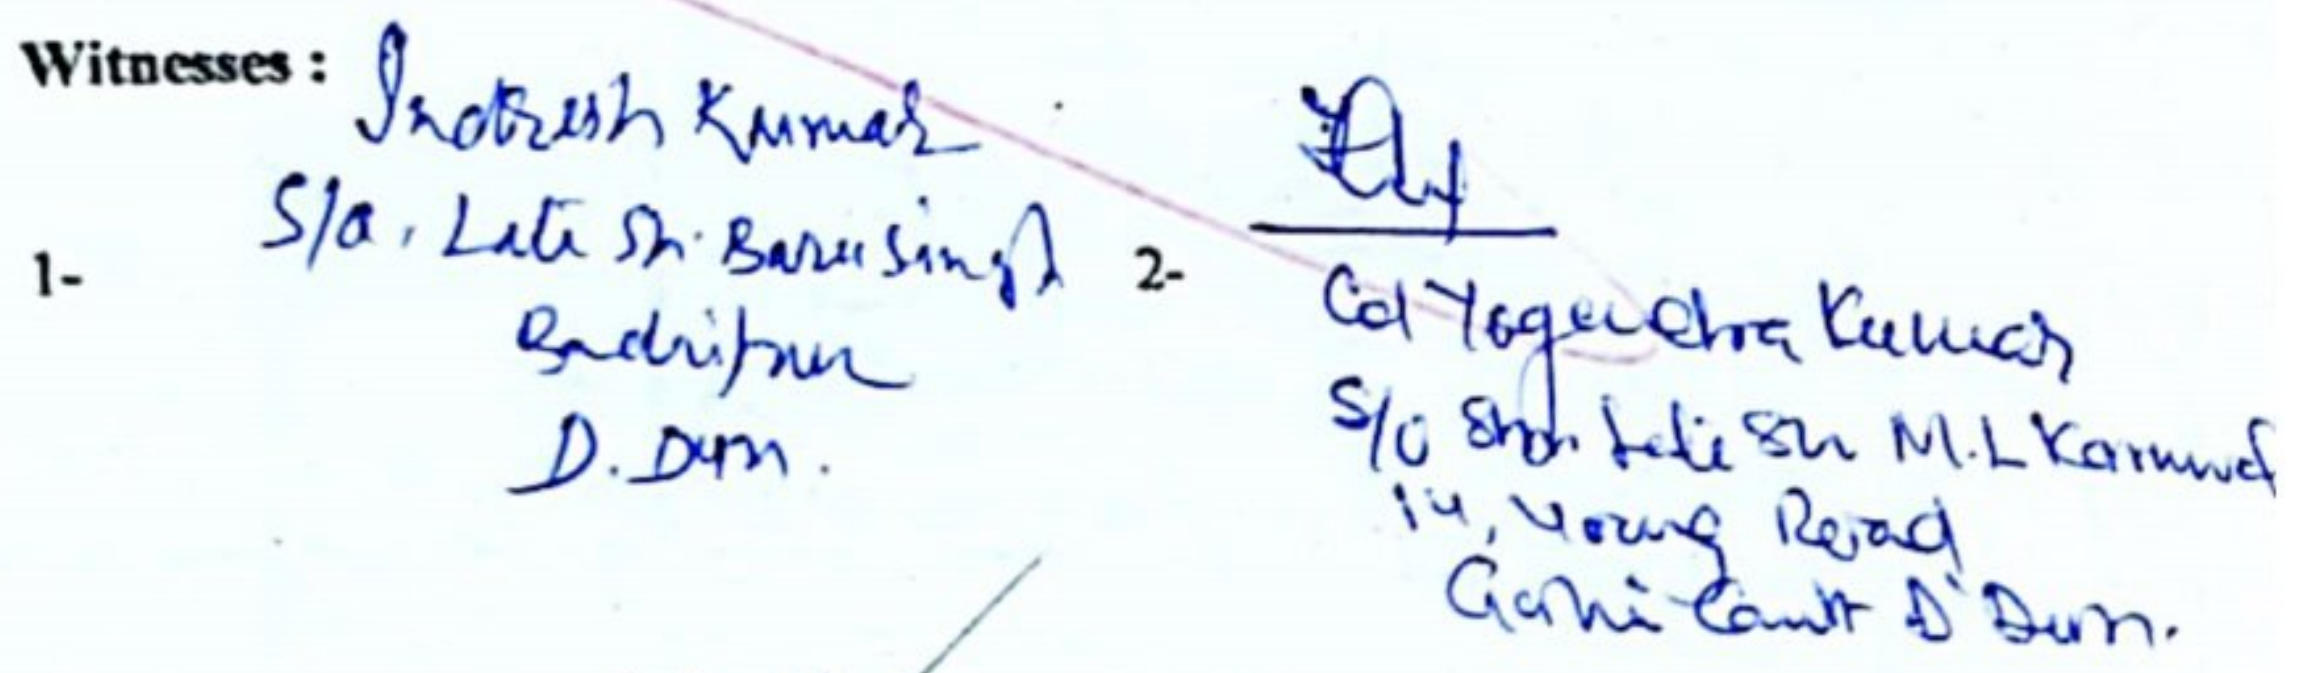 Witnesses :
Indresh Kumar
S/o, Late Sh. Baru Singh
1-
Badripur
D. Dun.
2-
Col Yogendra Kumar
S/o Late Sh M.L
14, Young Road
Garhi Cantt D'Dun.